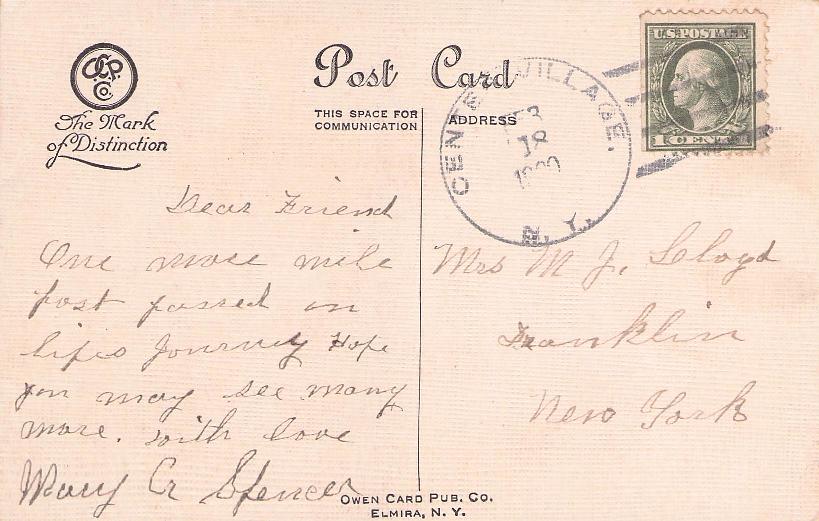 OCP. Co.
The Mark
of Distinction
Post Card
THIS SPACE FOR
COMMUNICATION
ADDRESS
CENTER VILLAGE,
N. Y.
U.S. POSTAGE
1 CENT 1
Dear Friend
One more mile
post passed on
lifes Journey Hope
you may see many
more. with love
Mary A Spencer
Mrs M J, Lloyd
Franklin
New York
OWEN CARD PUB. CO.
ELMIRA, N. Y.